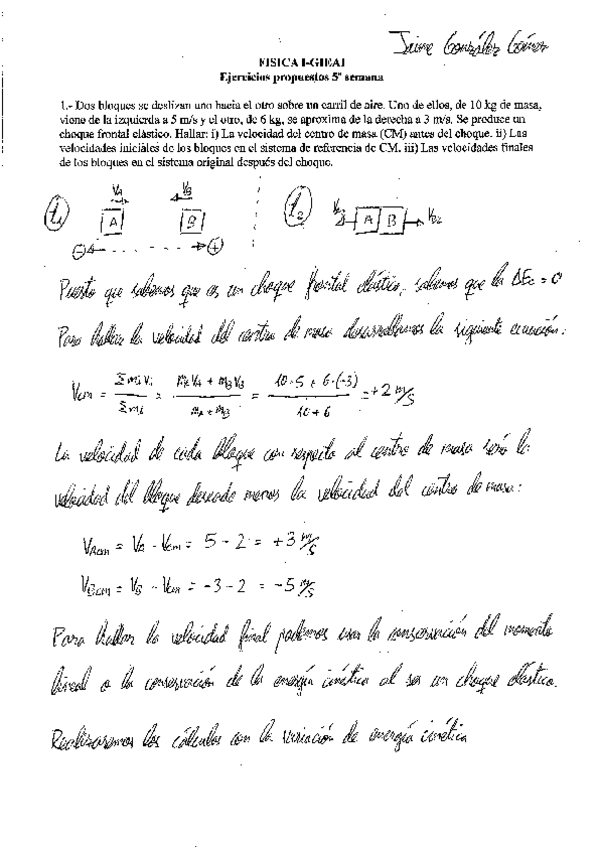 Jaime González Gómez
FISICA I-GIEAI
Ejercicios propuestos 5ª semana
1.- Dos bloques se deslizan uno hacia el otro sobre un carril de aire. Uno de ellos, de 10 kg de masa,
viene de la izquierda a 5 m/s y el otro, de 6 kg, se aproxima de la derecha a 3 m/s. Se produce un
choque frontal elástico. Hallar: i) La velocidad del centro de masa (CM) antes del choque. ii) Las
velocidades iniciáles de los bloques en el sistema de referencia de CM. iii) Las velocidades finales
de los bloques en el sistema original después del choque.
t₁ VA VB t₂ VB2
A B A B
- +
Puesto que sabemos que es un choque frontal elástico, sabemos que la ΔEc = 0
Para hallar la velocidad del centro de masa desarrollamos la siguiente ecuación:
Vcm = Σmivi / Σmi = (mAVA + mBVB) / (mA + mB) = (10·5 + 6·(-3)) / (10+6) = +2 m/s
La velocidad de cada bloque con respecto al centro de masa será la
velocidad del bloque deseado menos la velocidad del centro de masa:
VAcm = VA - Vcm = 5 - 2 = +3 m/s
VBcm = VB - Vcm = -3 - 2 = -5 m/s
Para hallar la velocidad final podemos usar la conservación del momento
lineal o la conservación de la energía cinética al ser un choque elástico.
Realizaremos los cálculos con la variación de energía cinética